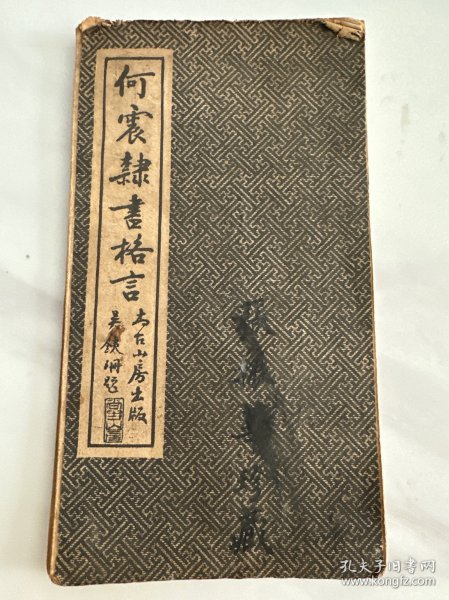 何震隸書格言
大古山房出版
吳鐵珊題
珍藏
孔夫子旧书网
www.kongfz.com